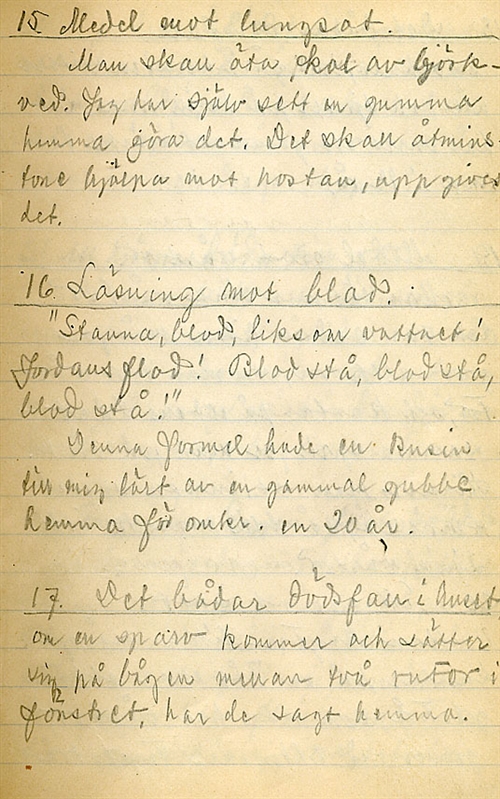 15. Medel mot lungsot.
Man skall äta kol av björk-
ved. Jag har själv sett en gumma
hemma göra det. Det skall åtmins-
tone hjälpa mot hostan, uppgives
det.
16. Läsning mot blod.
"Stanna, blod, liksom vattnet i
Jordans flod! Blod stå, blod stå,
blod stå!"
Denna formel hade en kusin
till mig lärt av en gammal gubbe
hemma för omkr. en 20 år.
17. Det bådar dödsfall i huset
om en sparv kommer och sätter
sig på bågen mellan två rutor i
fönstret, har de sagt hemma.